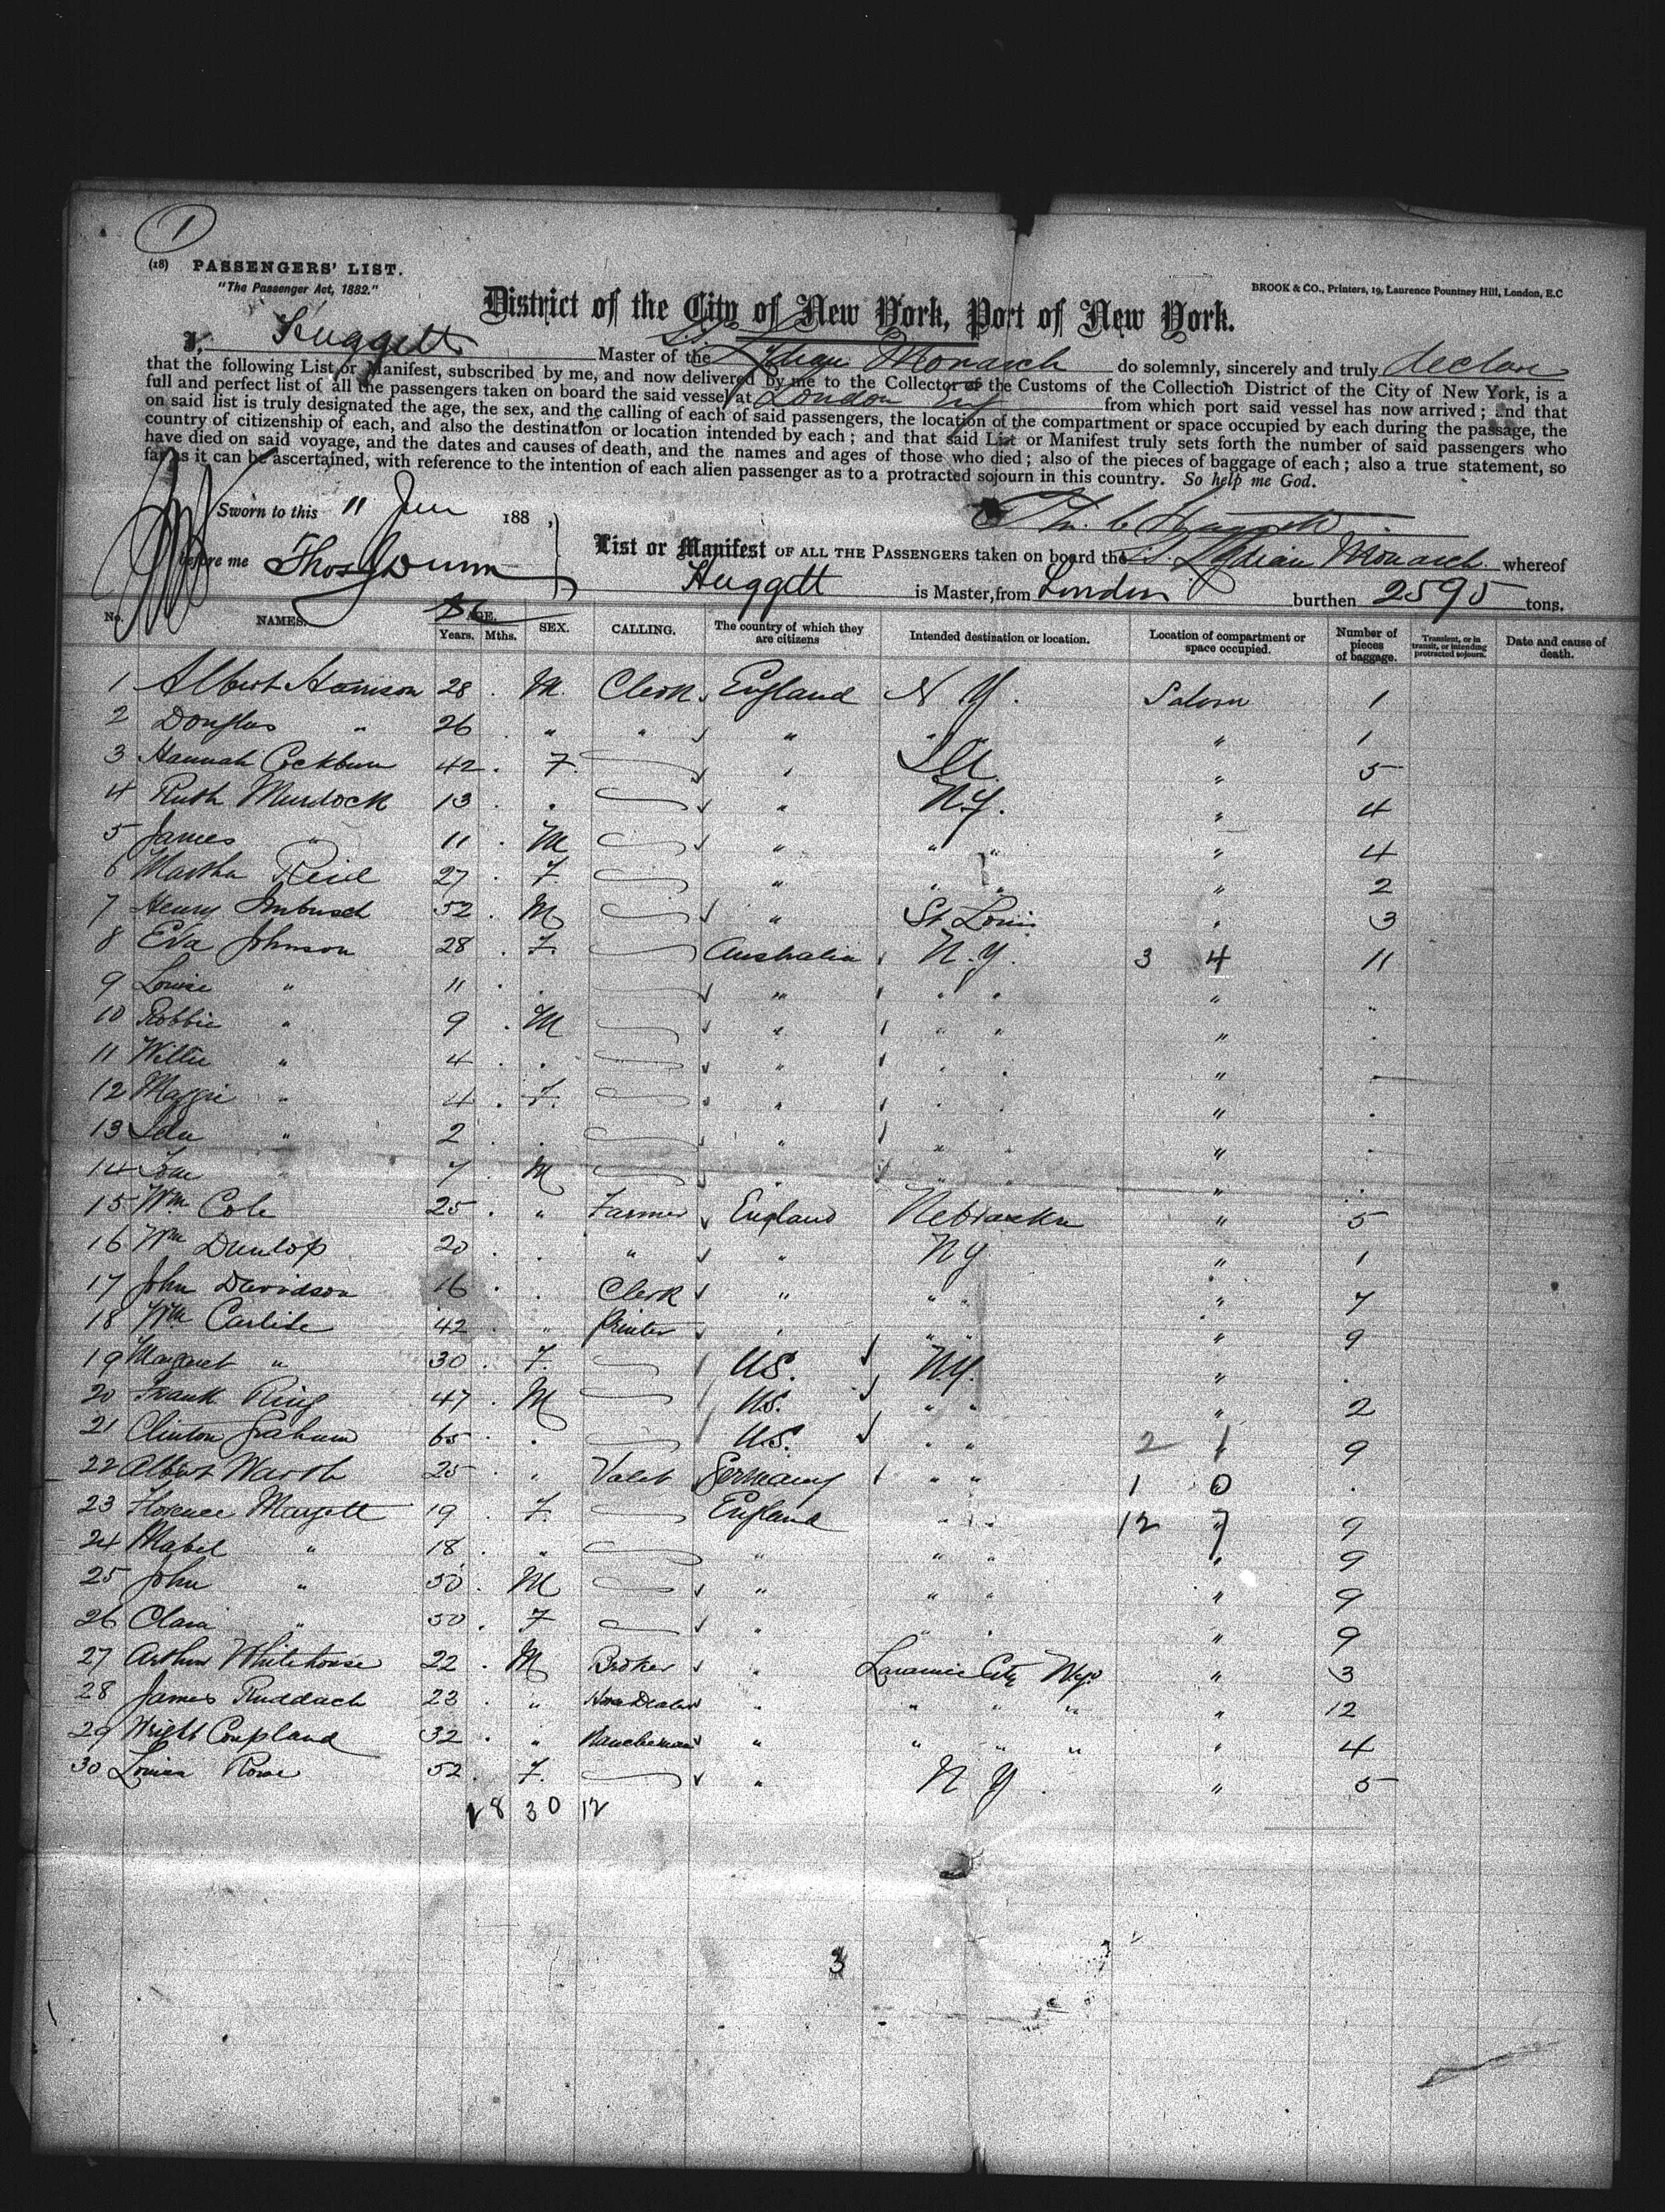 1
(18) PASSENGERS' LIST.
"The Passenger Act, 1882."
BROOK & CO., Printers, 19, Laurence Pountney Hill, London, E.C
District of the City of New York, Port of New York.
I, Huggett Master of the S.S. Lydian Monarch do solemnly, sincerely and truly declare
that the following List or Manifest, subscribed by me, and now delivered by me to the Collector of the Customs of the Collection District of the City of New York, is a
full and perfect list of all the passengers taken on board the said vessel at London Eng from which port said vessel has now arrived; and that
on said list is truly designated the age, the sex, and the calling of each of said passengers, the location of the compartment or space occupied by each during the passage, the
country of citizenship of each, and also the destination or location intended by each; and that said List or Manifest truly sets forth the number of said passengers who
have died on said voyage, and the dates and causes of death, and the names and ages of those who died; also of the pieces of baggage of each; also a true statement, so
far as it can be ascertained, with reference to the intention of each alien passenger as to a protracted sojourn in this country. So help me God.
Sworn to this 11 188 ,
before me Thos Dunn
List or Manifest OF ALL THE PASSENGERS taken on board the S.S. Lydian Monarch whereof
Huggett is Master, from London burthen 2595 tons.
No. NAMES. AGE. Years. Mths. SEX. CALLING. The country of which they are citizens Intended destination or location. Location of compartment or space occupied. Number of pieces of baggage. Transient, or in transit, or intending protracted sojourn. Date and cause of death.
1 Albert Harrison 28 M. Clerk England N Y. Saloon 1
2 Douglas " 26 " " " " " " 1
3 Hannah Cockburn 42 F. " " 5
4 Ruth Murdock 13 " " N.Y. " 4
5 James " 11 M " " " " 4
6 Martha Reid 27 F. " " " " 2
7 Henry 52 M " St. Louis " 3
8 Eva Johnson 28 F. Australia N.Y. 3 4 11
9 Louise " 11 " " " " " "
10 Robbie " 9 M " " " " "
11 Willie " 4 " " " " " "
12 Maggie " 4 F. " " " " "
13 " 2 " " " " " "
14 Tom " 7 M " " " " "
15 Wm Cole 25 " Farmer England Nebraska " 5
16 Wm Dunlop 20 " " " N Y " 1
17 John Davidson 16 " Clerk " " " " 7
18 Wm Carlile 42 " Printer " " " " 9
19 Margaret " 30 F. U.S. N.Y. " "
20 Frank Ring 47 M U.S. " " " 2
21 Clinton Graham 65 " U.S. " " 2 1 " 9
22 Albert 25 " Valet Germany " " 1 0 "
23 Florence Margett 19 F. England " " 12 7 " 9
24 Mabel " 18 " " " " " 9
25 John " 50 M " " " " 9
26 Clara " 50 F " " " " 9
27 Arthur Whitehouse 22 M Broker " Laramie City Wyo " 3
28 James Ruddach 23 " " " " " " 12
29 Wright Coupland 32 " Rancheman " " " " " 4
30 Louisa Rowe 52 F. " N Y. " 5
18 30 12
3